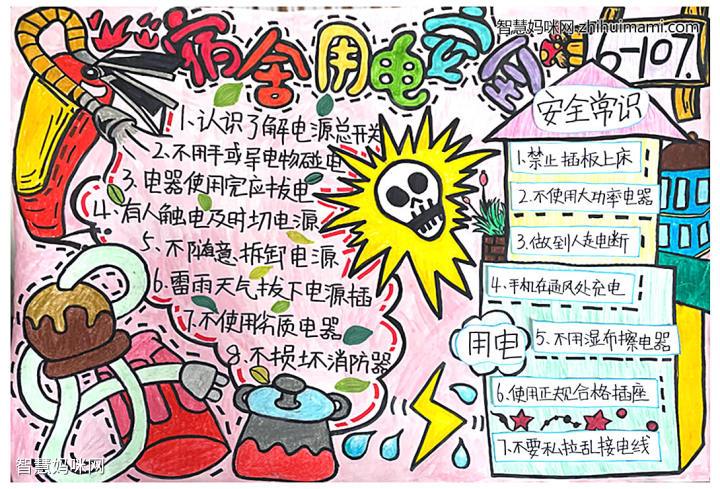 智慧妈咪网 zhihuimami.com
宿舍用电安则
6-107.
1、认识了解电源总开关
2、不用手或导电物碰电
3、电器使用完应拔电
4、有人触电及时切电源
5、不随意拆卸电源
6、雷雨天气拔下电源插
7、不使用劣质电器
8、不损坏消防器
安全常识
1、禁止插板上床
2、不使用大功率电器
3、做到人走电断
4、手机在通风处充电
用电
5、不用湿布擦电器
6、使用正规合格插座
7、不要私拉乱接电线
智慧妈咪网